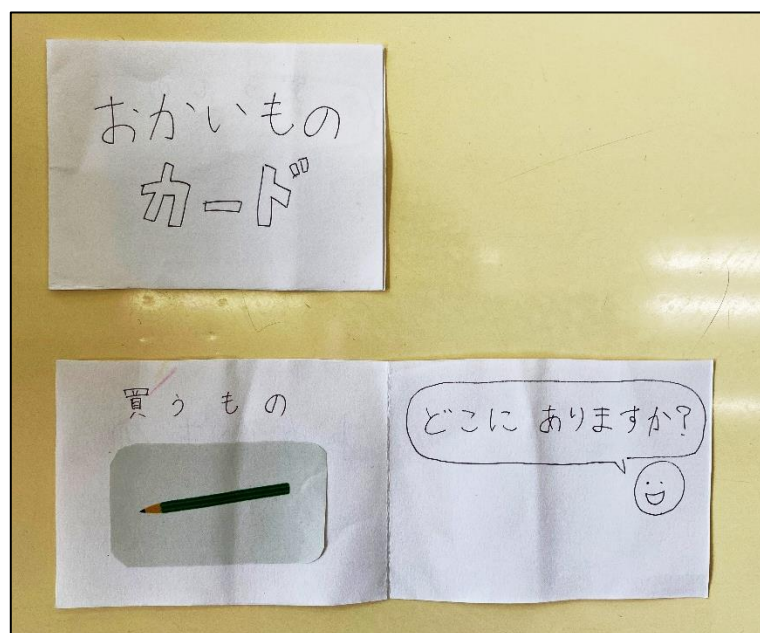 おかいもの
カード
買うもの
どこに ありますか?